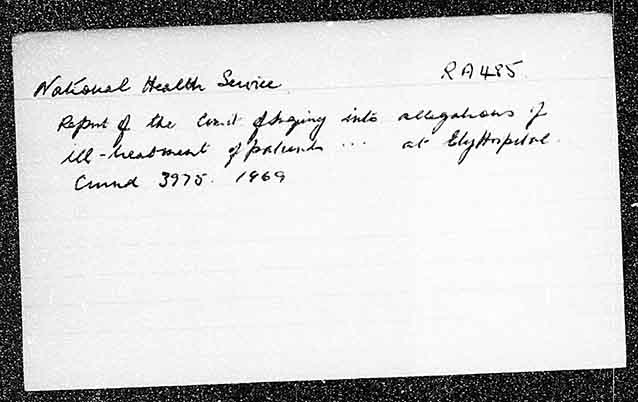 National Health Service RA485
Report of the Comt. of Inquiry into allegations of
ill-treatment of patients ... at Ely Hospital.
Cmnd 3975. 1969